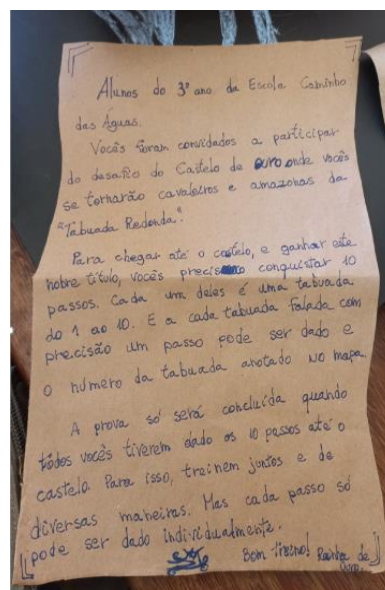 Alunos do 3º ano da Escola Caminho
das Águas.
Vocês foram convidados a participar
do desafio do Castelo de ouro onde vocês
se tornarão cavaleiros e amazonas da
"Tabuada Redonda".
Para chegar até o castelo, e ganhar este
nobre título, vocês precisam conquistar 10
passos. Cada um deles é uma tabuada
do 1 ao 10. E a cada tabuada falada com
precisão um passo pode ser dado e
o número da tabuada anotado no mapa.
A prova só será concluída quando
todos vocês tiverem dado os 10 passos até o
castelo. Para isso, treinem juntos e de
diversas maneiras. Mas cada passo só
pode ser dado individualmente.
Bom treino! Rainha de
Ouro.